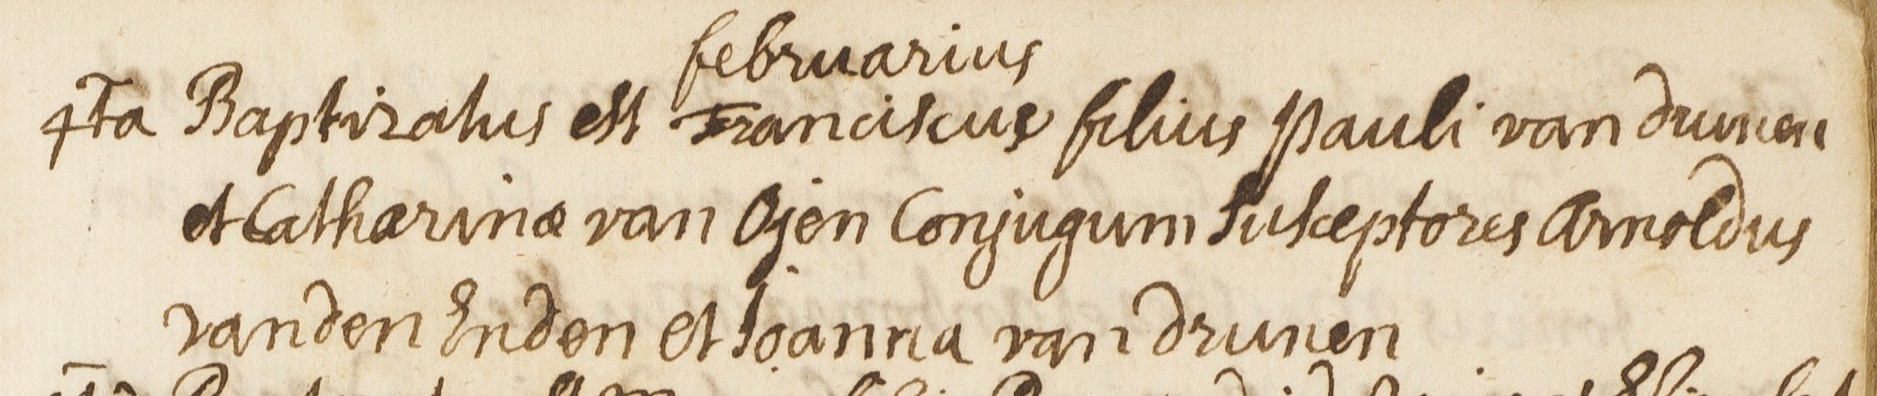 februarius
4ta Baptizatus est Franciscus filius Pauli van drunen
et Catharinæ van Ojen Conjugum Susceptores Arnoldus
vanden Enden et Joanna van drunen